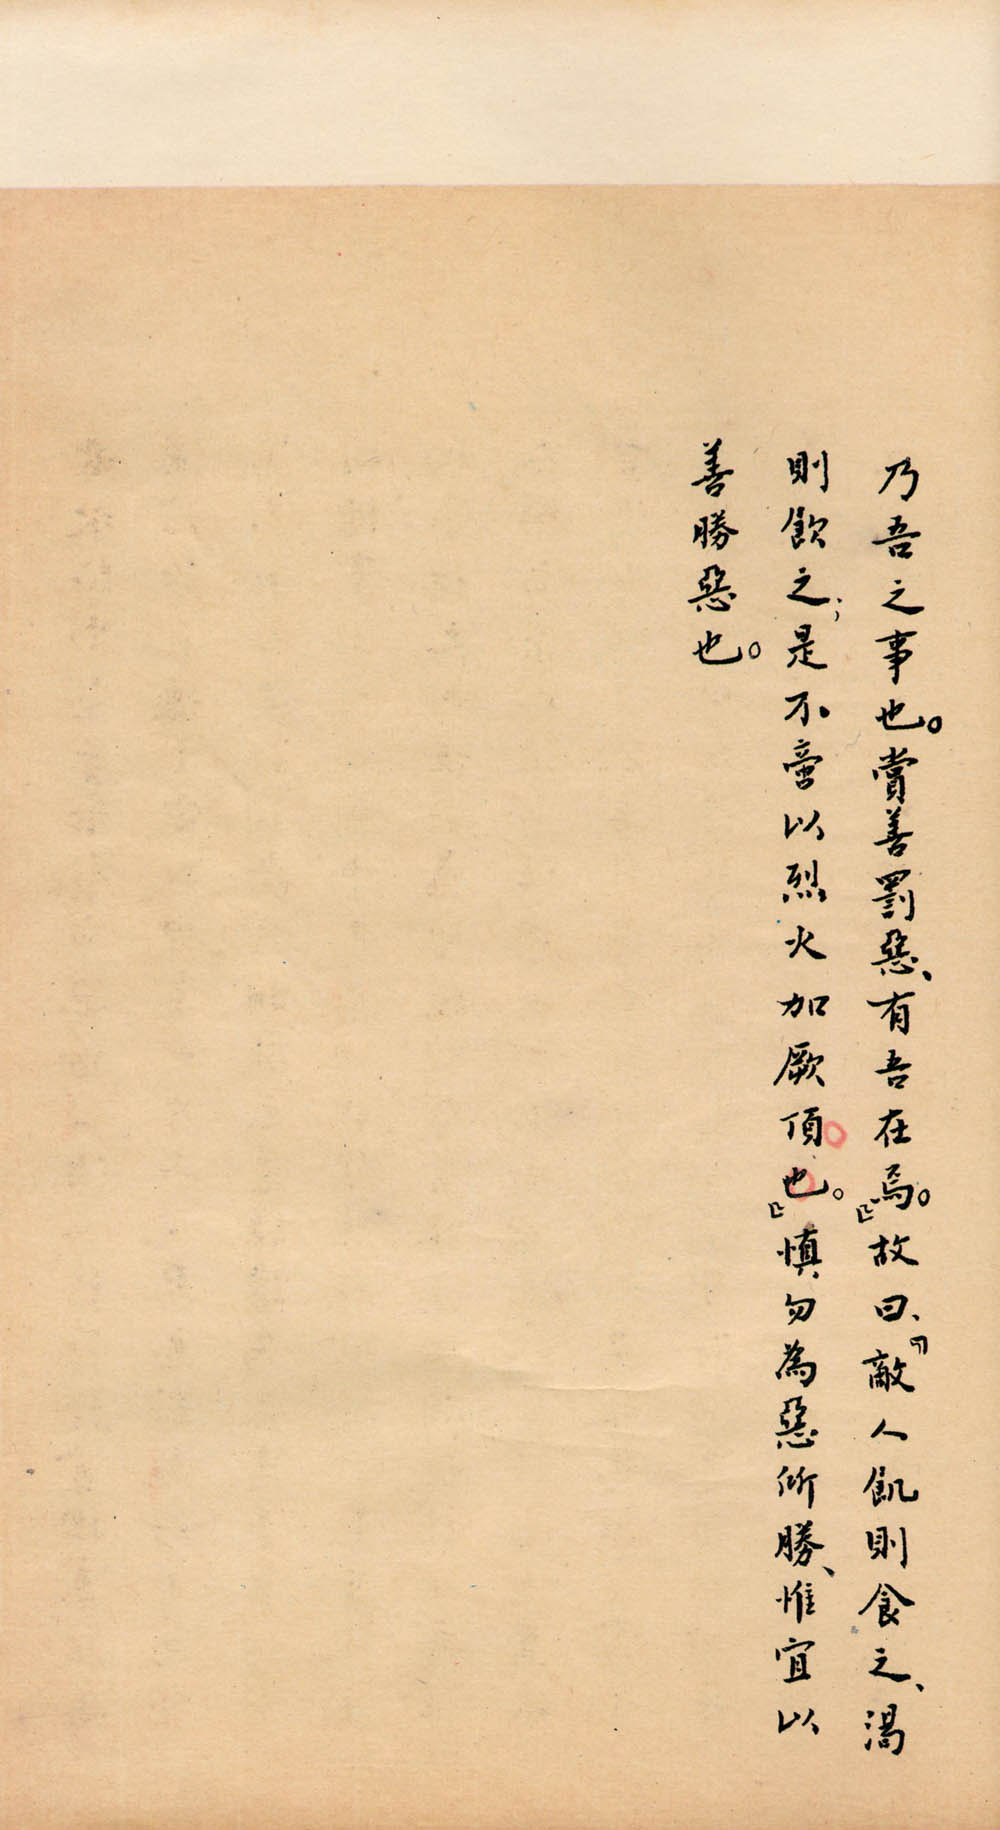 乃吾之事也。賞善罰惡、有吾在焉。』故曰、『敵人飢則食之、渴
則飲之；是不啻以烈火加厥頂也。』慎勿為惡所勝、惟宜以
善勝惡也。